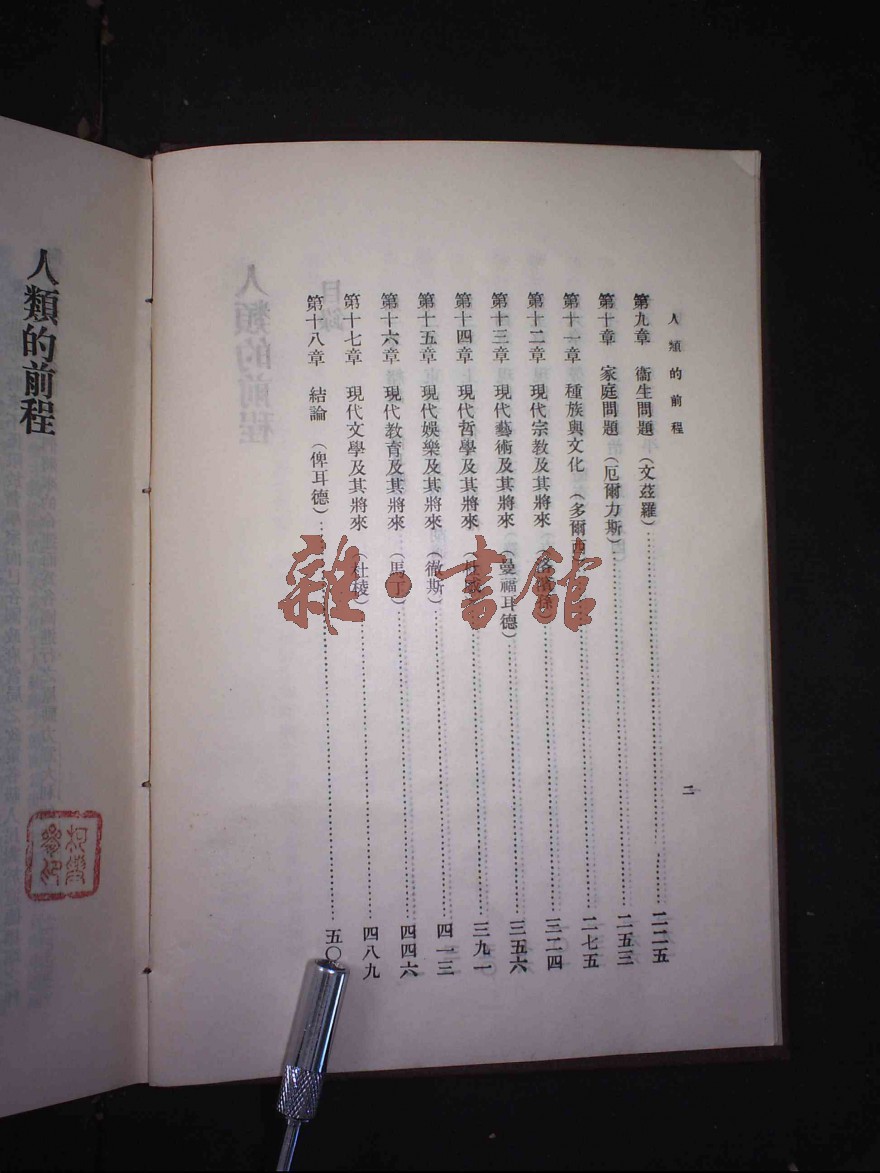 人類的前程
二
第九章　衞生問題（文茲羅）……二二五
第十章　家庭問題（厄爾力斯）……二五三
第十一章　種族與文化（多爾西……二七五
第十二章　現代宗教及其將來……三二四
第十三章　現代藝術及其將來（曼福耳德）……三五六
第十四章　現代哲學及其將來（杜威）……三九一
第十五章　現代娛樂及其將來（徹斯）……四一三
第十六章　現代教育及其將來（馬丁）……四四六
第十七章　現代文學及其將來（杜稜）……四八九
第十八章　結論　（俾耳德）……五〇
人類的前程
雜·書館